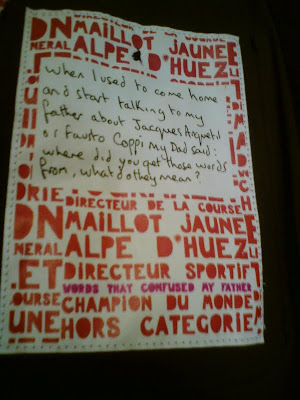 DN MAILLOT JAUNE
MERAL ALPE D'HUEZ
When I used to come home
and start talking to my
father about Jacques Anquetil
or Fausto Coppi my Dad said:
where did you get those words
from, what do they mean?
DIRECTEUR DE LA COURSE
DN MAILLOT JAUNE
MERAL ALPE D'HUEZ
ET DIRECTEUR SPORTIF
WORDS THAT CONFUSED MY FATHER
OURSE CHAMPION DU MONDE
UNE HORS CATEGORIE